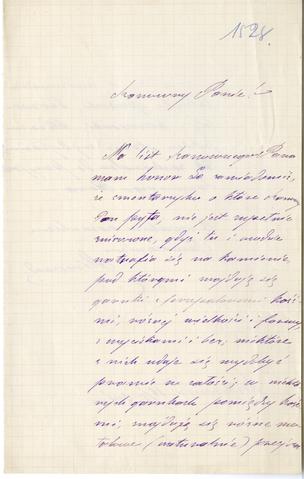 1528.
Szanowny Panie!
Na list Szanownego Pana
mam honor Go zawiadomić,
że cmentarzysko o które Szanowny
Pan pyta, nie jest zupełnie
zniszczone, gdyż tu i ówdzie
natrafia się na kamienie
pod któremi znajdują się
garnki z kość-
mi, różnej wielkości i formy
z wyciskami i bez, niektóre
z nich udaje się wydobyć
prawie w całości; w niektó-
rych garnkach pomiędzy kość-
mi, znajdują się różne me-
talowe (naturalnie)